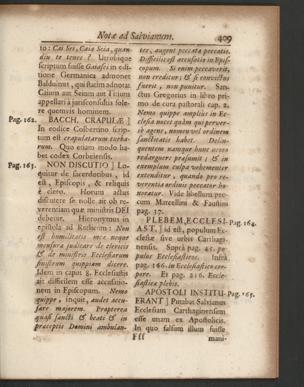 Notæ ad Salvianum.
409
to: Cai Sei, Caia Seia, quam
diu te tenet? Utrobique
scriptum fuisse Gaiasei in edi-
tione Germanica admonet
Balduinus, qui statim admonet
Caium aut Seium aut Titium
appellari à jurisconsultis sole-
re quemvis hominem.
Pag. 162.
BACCH. CRAPULÆ]
In codice Corberino scrip-
tum est crapulætarum turba-
rum. Quo etiam modo ha-
bet codex Corbeiensis.
Pag. 163.
NON DISCUTIO] Lo-
quitur de sacerdotibus, id
est, Episcopis, & reliquo
clero. Horum actus
discutere se nolle ait ob re-
verentiam quæ ministris DEI
debetur. Hieronymus in
epistola ad Rusticum: Non
est humilitatis meæ neque
mensura judicare de clericis
& de ministris Ecclesiarum
sinistrum quippiam dicere.
Idem in caput 8. Ecclesiastis
ait difficilem esse accusatio-
nem in Episcopum. Nemo
quippe, inquit, audet accu-
sare majorem. Propterea
quasi sancti & beati & in
præceptis Domini ambulan-
tes, augent peccata peccatis.
Difficilis est accusatio in Epis-
copum. Si enim peccaverit,
non creditur; & si convictus
fuerit, non punitur. San-
ctus Gregorius in libro pri-
mo de cura pastorali cap. 2.
Nemo quippe amplius in Ec-
clesia nocet quàm qui perver-
sè agens, nomen vel ordinem
sanctitatis habet. Delin-
quentem namque hunc
redarguere præsumit; & in
exemplum culpa vehementer
extenditur, quando pro re-
verentia ordinis peccator ho-
noratur. Vide libellum pre-
cum Marcellini & Faustini
pag. 37.
PLEBEM, ECCLESI-
AST.] id est, populum Ec-
clesiæ sive urbis Carthagi-
nensis. Suprà pag. 45. po-
pulus Ecclesiasticus. Infrà
pag. 166. in Ecclesiastico cor-
pore. Et pag. 216. Eccle-
siastica plebis.
Pag. 164.
APOSTOLI INSTITU-
ERANT] Putabat Salvianus
Ecclesiam Carthaginensem
esse unam ex Apostolicis.
In quo falsum illum fuisse
Pag. 165.
Fff
mani-